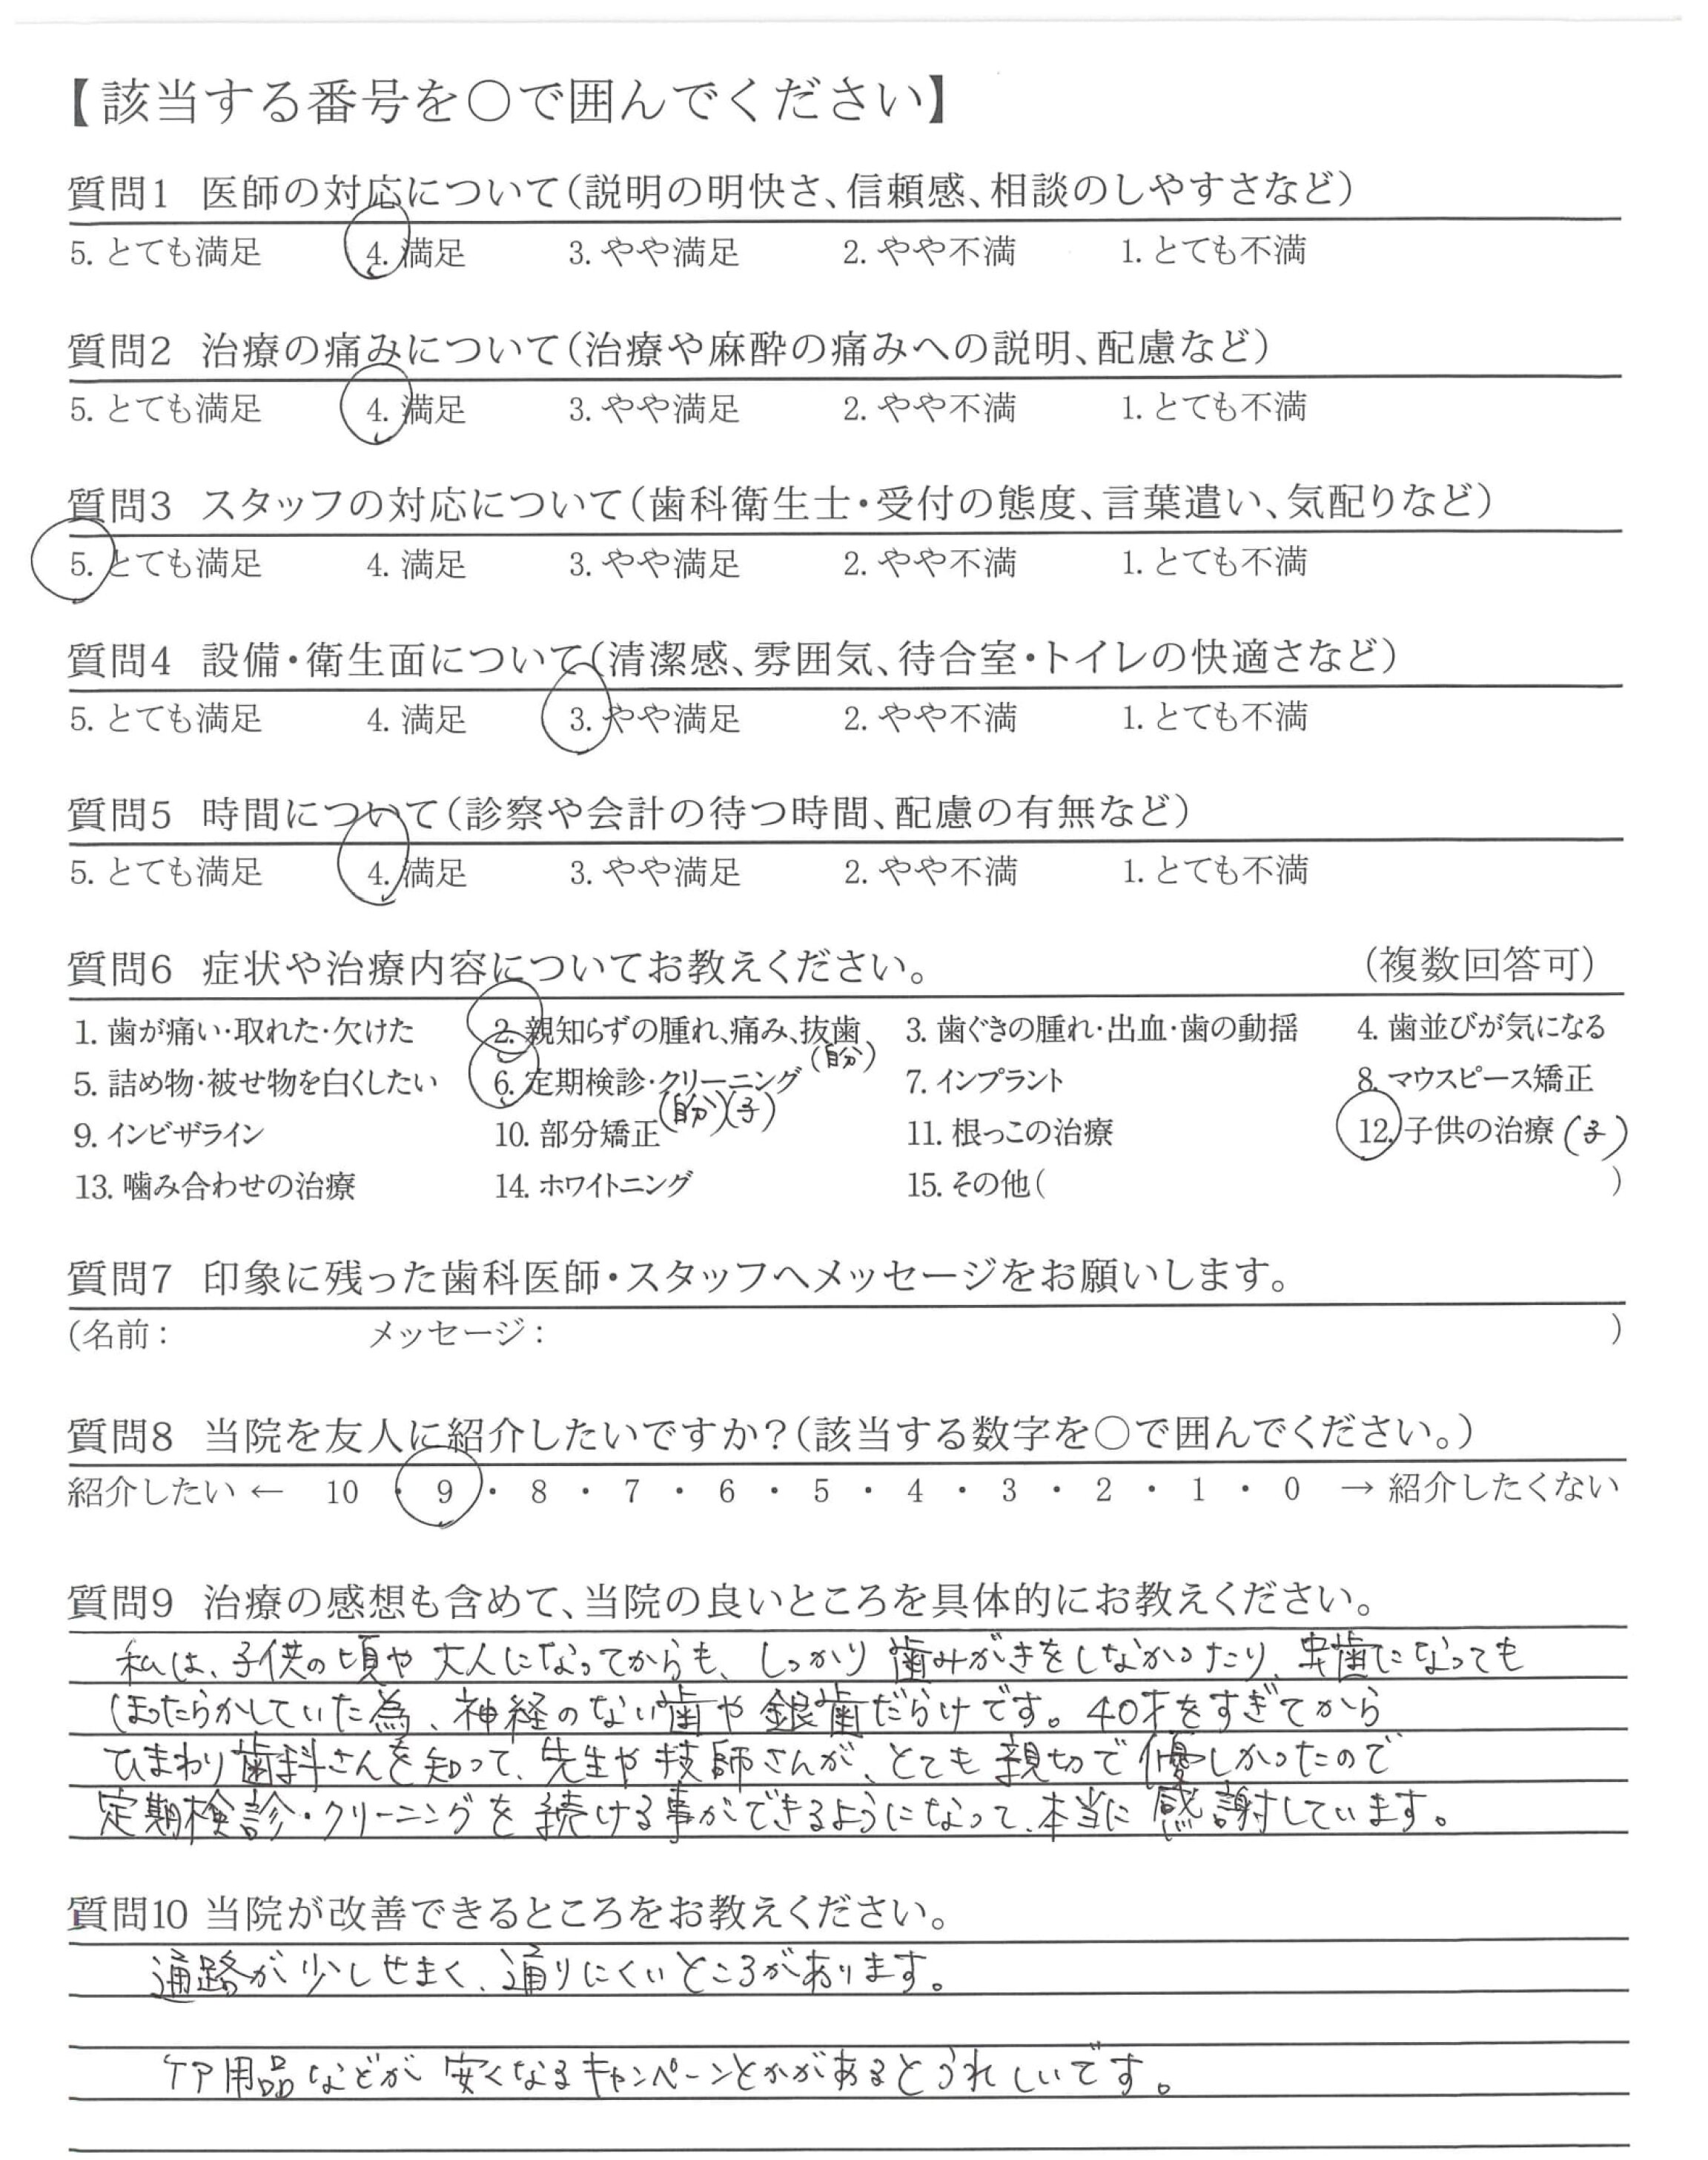 【該当する番号を○で囲んでください】
質問1 医師の対応について(説明の明快さ、信頼感、相談のしやすさなど)
5. とても満足 4. 満足 3. やや満足 2. やや不満 1. とても不満
質問2 治療の痛みについて(治療や麻酔の痛みへの説明、配慮など)
5. とても満足 4. 満足 3. やや満足 2. やや不満 1. とても不満
質問3 スタッフの対応について(歯科衛生士・受付の態度、言葉遣い、気配りなど)
5. とても満足 4. 満足 3. やや満足 2. やや不満 1. とても不満
質問4 設備・衛生面について(清潔感、雰囲気、待合室・トイレの快適さなど)
5. とても満足 4. 満足 3. やや満足 2. やや不満 1. とても不満
質問5 時間について(診察や会計の待つ時間、配慮の有無など)
5. とても満足 4. 満足 3. やや満足 2. やや不満 1. とても不満
質問6 症状や治療内容についてお教えください。 (複数回答可)
1. 歯が痛い・取れた・欠けた 2. 親知らずの腫れ、痛み、抜歯 3. 歯ぐきの腫れ・出血・歯の動揺 4. 歯並びが気になる
(自分)
5. 詰め物・被せ物を白くしたい 6. 定期検診・クリーニング 7. インプラント 8. マウスピース矯正
(自分)(子)
9. インビザライン 10. 部分矯正 11. 根っこの治療 12. 子供の治療 (子)
13. 噛み合わせの治療 14. ホワイトニング 15. その他( )
質問7 印象に残った歯科医師・スタッフへメッセージをお願いします。
(名前: メッセージ: )
質問8 当院を友人に紹介したいですか?(該当する数字を○で囲んでください。)
紹介したい ← 10 ・ 9 ・ 8 ・ 7 ・ 6 ・ 5 ・ 4 ・ 3 ・ 2 ・ 1 ・ 0 → 紹介したくない
質問9 治療の感想も含めて、当院の良いところを具体的にお教えください。
私は、子供の頃や大人になってからも、しっかり歯みがきをしなかったり、虫歯になっても
ほったらかしていた為、神経のない歯や銀歯だらけです。40才をすぎてから
ひまわり歯科さんを知って、先生や技師さんが、とても親切で優しかったので
定期検診・クリーニングを続ける事ができるようになって、本当に感謝しています。
質問10 当院が改善できるところをお教えください。
通路が少しせまく、通りにくいところがあります。
ケア用品などが安くなるキャンペーンとかがあるとうれしいです。